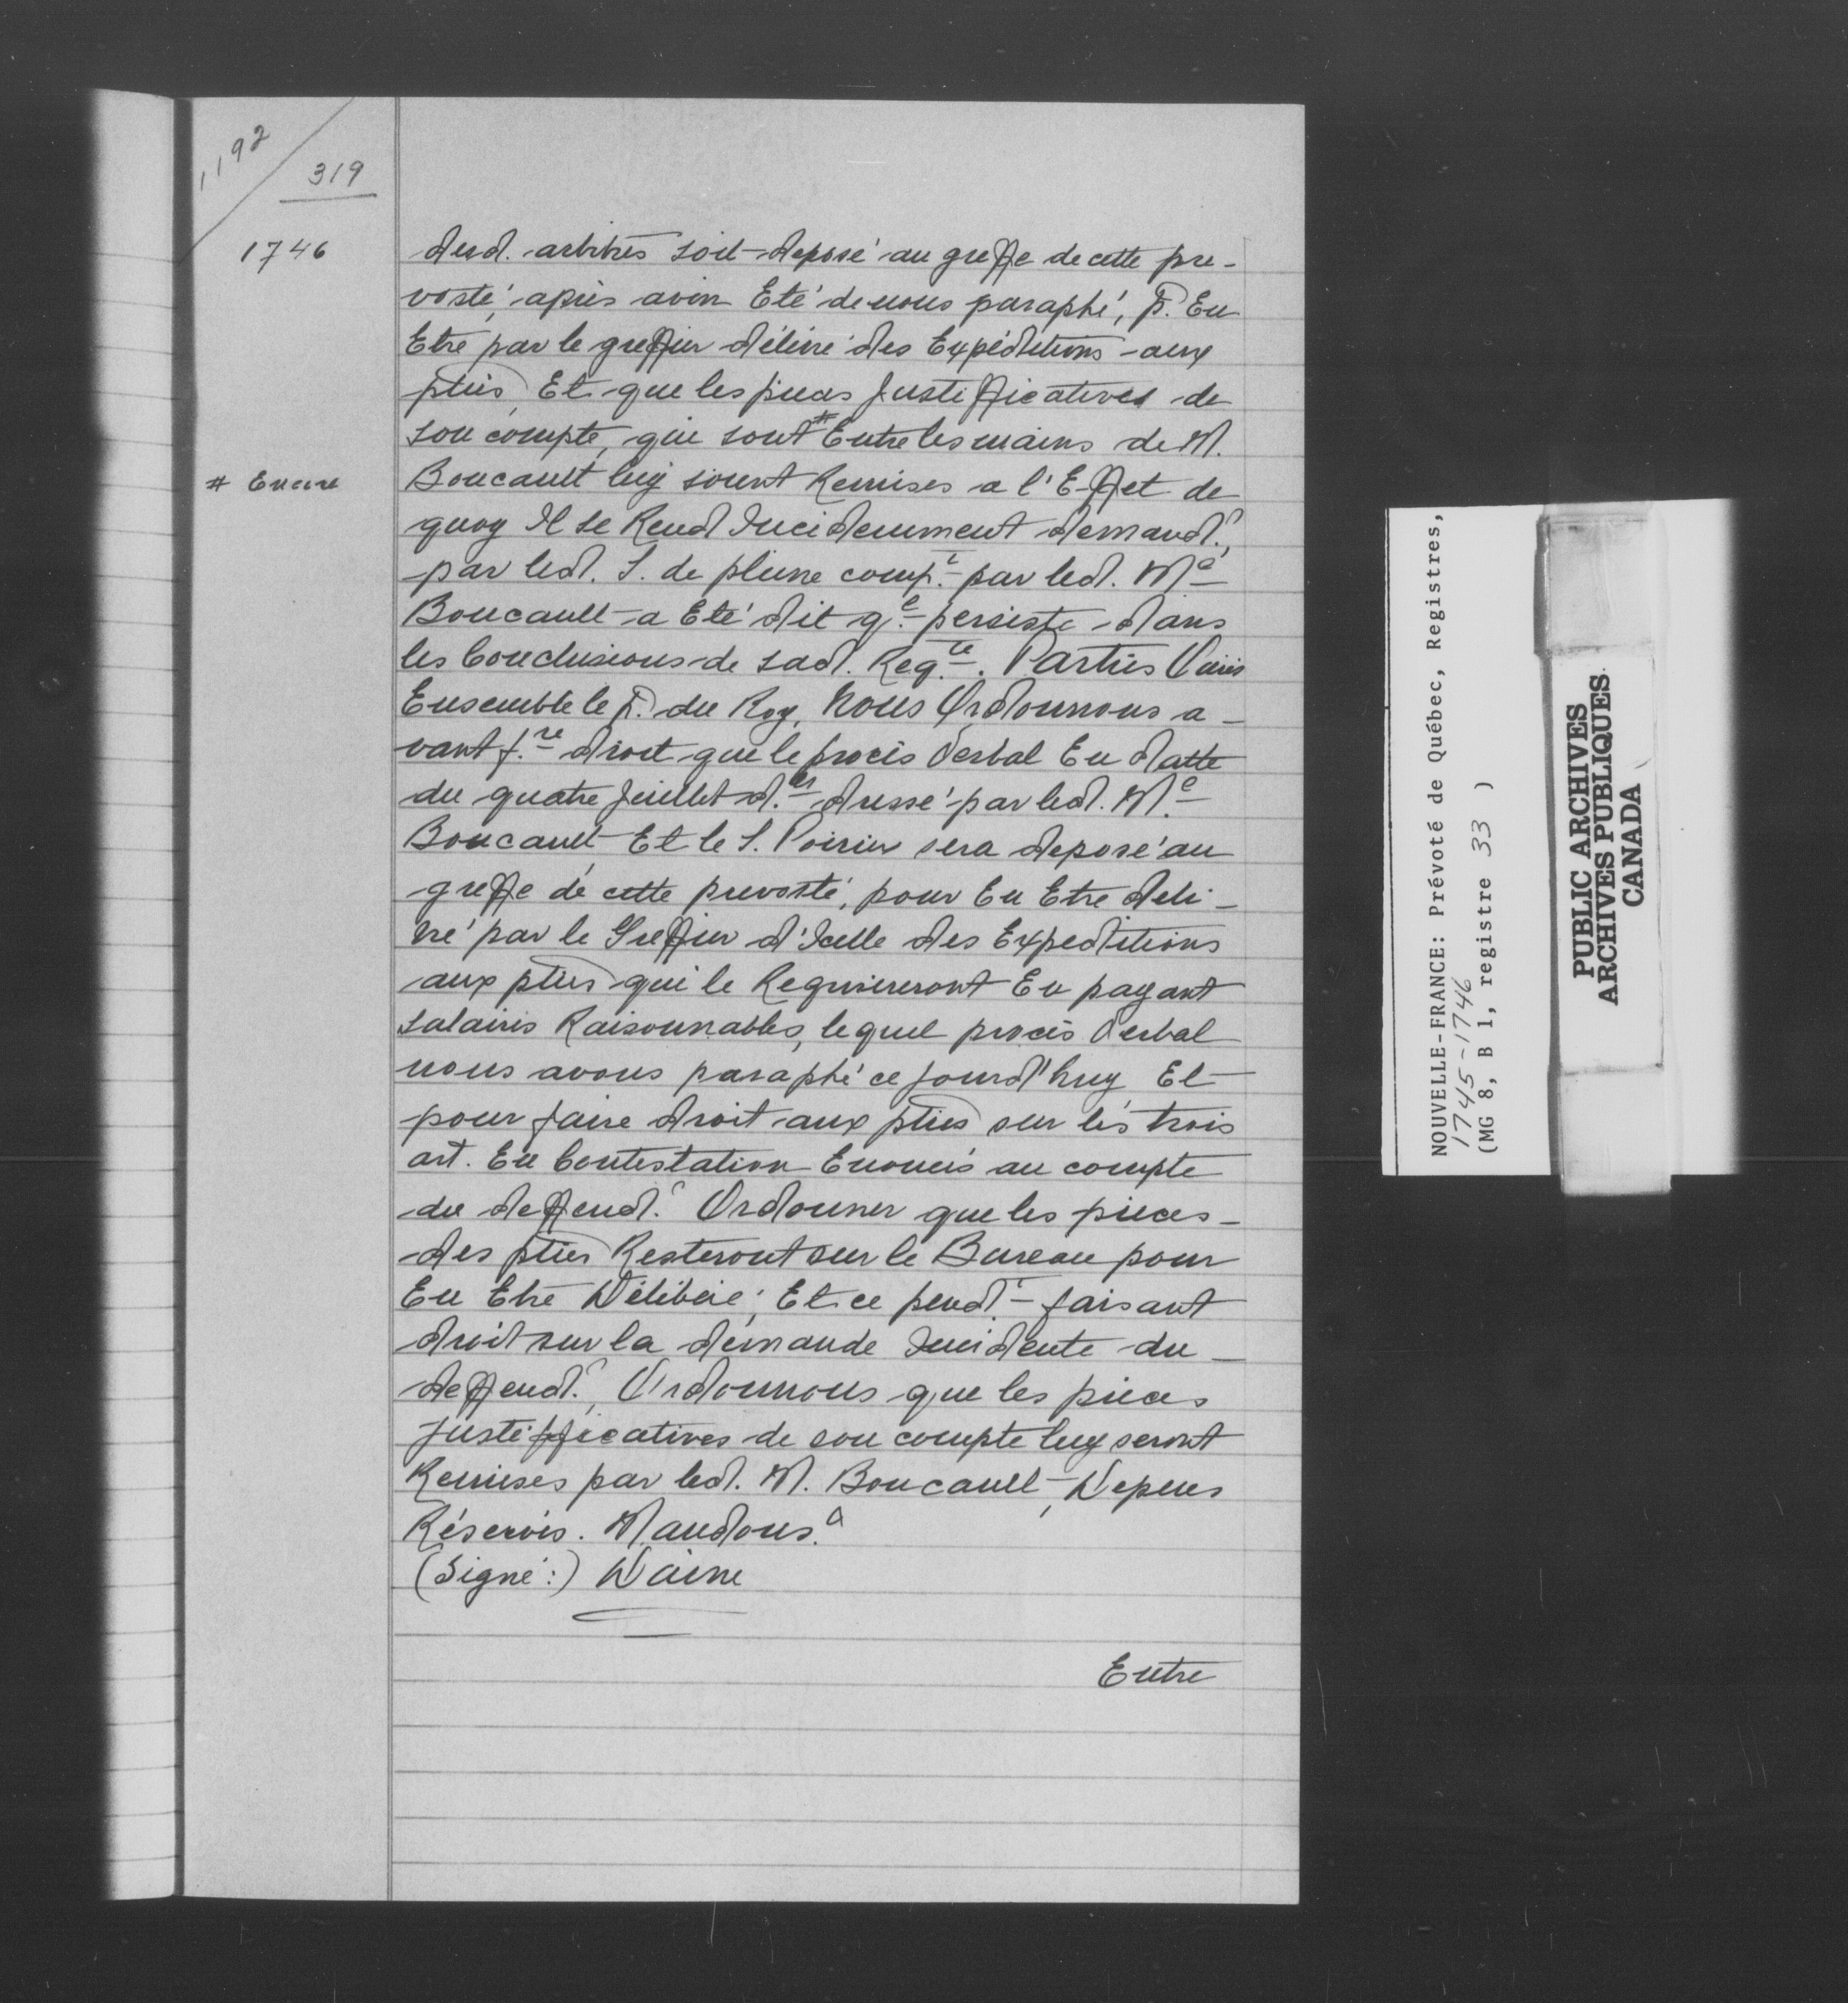 1192
319
1746
desd. arbitres soit deposé au greffe de cette pre-
vosté, après avoir Eté de nous paraphé, P. En
Etre par le greffier délivré des Expéditions aux
pties, Et que les pieces Justifficatives de
son compte, qui sont # Entre les mains de M.
# Encore
Boucault luy soient Remises a l'Effet de
quoy Il se Rend Incidemment demand.r,
par led. S. de pleine comp.t par led. Me
Boucault a Eté dit q.l persiste dans
les Conclusions de sad. Reqte. Parties Ouies
Ensemble le P. du Roy, Nous Ordonnons a-
vant f.re droit que le procès Verbal En datte
du quatre Juillet d.er dressé par led. Me
Boucault Et le S. Poirier sera deposé au
greffe de cette prevosté, pour En Etre deli-
vré par le Greffier d'Icelle des Expeditions
aux pties qui le Requireront En payant
salaires Raisonnables, lequel procès Verbal
nous avons paraphé ce jourd'huy Et
pour faire droit aux pties sur les trois
art. En Contestation Enoncés au compte
du deffend.r Ordonner que les pieces
des pties Resteront sur le Bureau pour
En Etre Délibéré; Et ce pend.t faisant
droit sur la demande Incidente du
deffend.r, Ordonnons que les pieces
Justifficatives de son compte luy seront
Remises par led. M. Boucault, Depens
Réservés. Mandons.a
(Signé:) Daine
Entre
NOUVELLE-FRANCE: Prévoté de Québec, Registres,
1745-1746
(MG 8, B 1, registre 33 )
PUBLIC ARCHIVES
ARCHIVES PUBLIQUES
CANADA